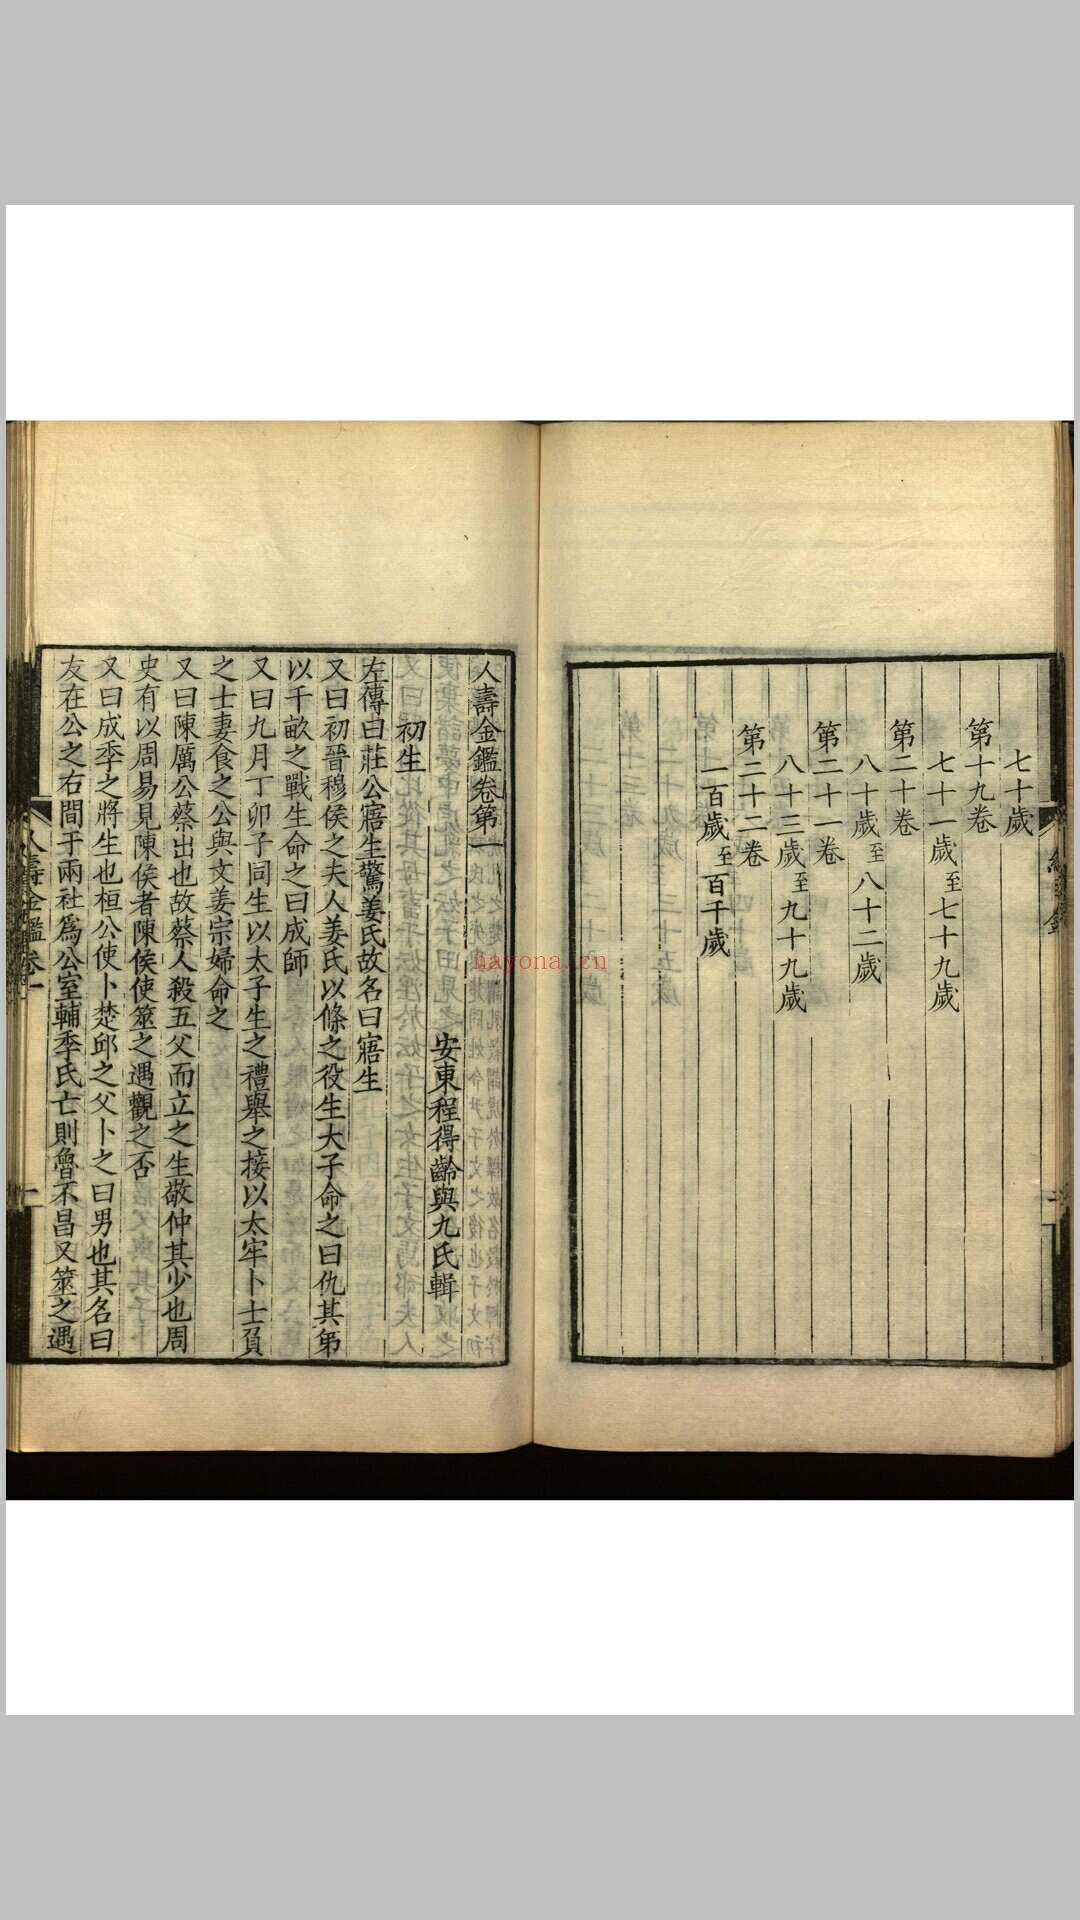 七十歲
第十九卷
七十一歲至七十九歲
第二十卷
八十歲至八十二歲
第二十一卷
八十三歲至九十九歲
第二十二卷
一百歲至百千歲
人壽金鑑卷第一
安東程得齡與九氏輯
初生
左傳曰莊公寤生驚姜氏故名曰寤生
又曰初晉穆侯之夫人姜氏以條之役生大子命之曰仇其弟
以千畝之戰生命之曰成師
又曰九月丁卯子同生以太子生之禮舉之接以太牢卜士負
之士妻食之公與文姜宗婦命之
又曰陳厲公蔡出也故蔡人殺五父而立之生敬仲其少也周
史有以周易見陳侯者陳侯使筮之遇觀之否
又曰成季之將生也桓公使卜楚邱之父卜之曰男也其名曰
友在公之右間于兩社爲公室輔季氏亡則魯不昌又筮之遇
人壽金鑑 卷一
一
nayona.cn